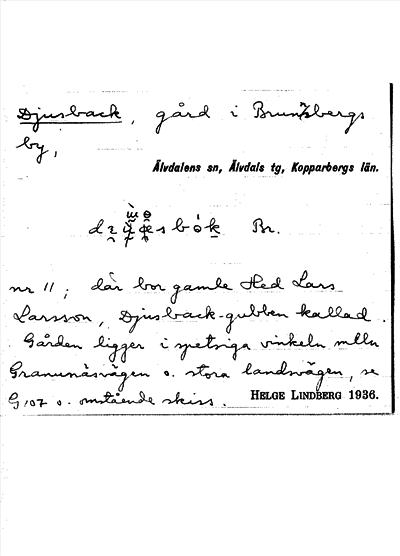 Djusback, gård i Brunnsbergs
by,
Älvdalens sn, Älvdals tg, Kopparbergs län.
Br.
nr 11; där bor gamle Hed Lars
Larsson, Djusback-gubben kallad.
Gården ligger i spetsiga vinkeln mlln
Granunäsvägen o. stora landsvägen, se
G 107 o. omstående skiss. HELGE LINDBERG 1936.